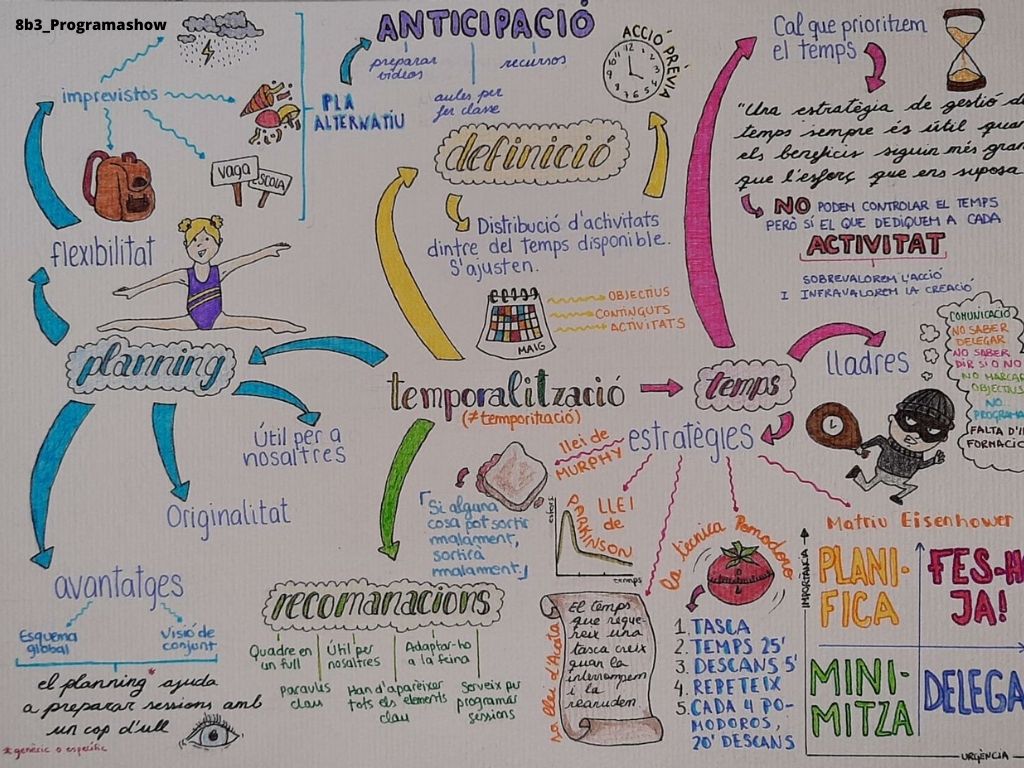 8b3_Programashow
ANTICIPACIÓ
preparar
vídeos
recursos
aules per
fer classe
ACCIÓ PRÈVIA
imprevistos
PLA
ALTERNATIU
vaga
ESCOLA
flexibilitat
definició
Distribució d'activitats
dintre del temps disponible.
S'ajusten.
OBJECTIUS
CONTINGUTS
ACTIVITATS
MAIG
Cal que prioritzem
el temps
"Una estratègia de gestió de
temps sempre és útil quan
els beneficis siguin més gran
que l'esforç que ens suposa
NO PODEM CONTROLAR EL TEMPS
PERÒ SÍ EL QUE DEDIQUEM A CADA
ACTIVITAT
SOBREVALOREM L'ACCIÓ
I INFRAVALOREM LA CREACIÓ
planning
Útil per a
nosaltres
Originalitat
avantatges
Esquema
global
Visió de
conjunt
el planning* ajuda
a preparar sessions amb
un cop d'ull
*genèric o específic
temporalització
(≠temporització)
temps
lladres
COMUNICACIÓ
NO SABER
DELEGAR
NO SABER
DIR SÍ O NO
NO MARCAR
OBJECTIUS
NO
PROGRAMA
FALTA D'I
FORMACIÓ
estratègies
llei de
MURPHY
Si alguna
cosa pot sortir
malament,
sortirà
malament.
LLEI
de
PARKINSON
esforç
temps
sa llei d'Acosta
El temps
que reque-
reix una
tasca creix
quan la
interrompem
i la
reanuden.
la tècnica Pomodoro
1. TASCA
2. TEMPS 25'
3. DESCANS 5'
4. REPETEIX
5. CADA 4 PO-
MODOROS,
20' DESCANS
Matriu Eisenhower
IMPORTÀNCIA
PLANI-
FICA
FES-HO
JA!
MINI-
MITZA
DELEGA
URGÈNCIA
recomanacions
Quadre en
un full
Útil per
nosaltres
Adaptar-ho
a la feina
paraules
clau
Han d'aparèixer
tots els elements
clau
Serveix per
programar
sessions